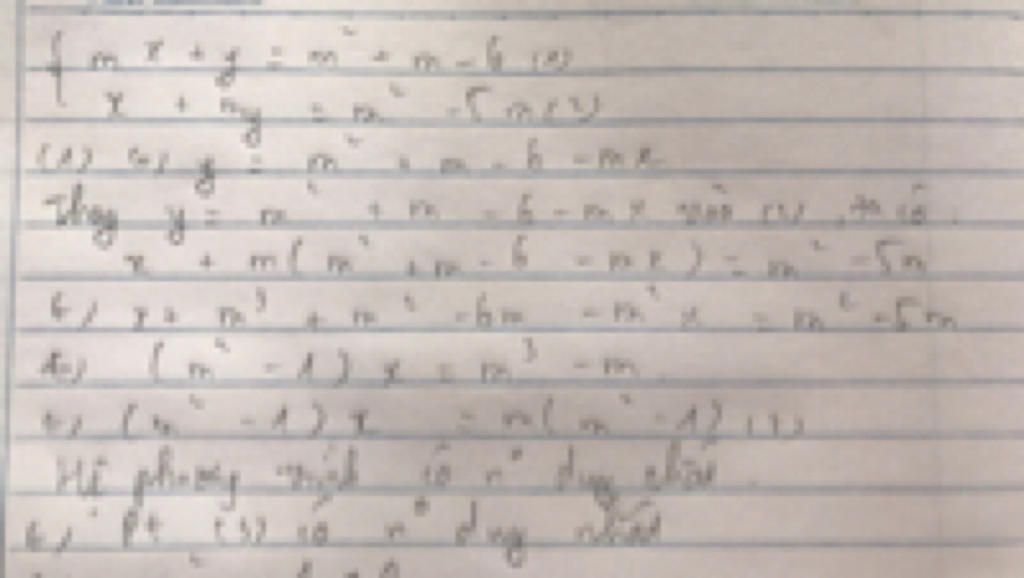 { mx + y = m² + m - 6 (1)
x + my = m² - 5m (2)
(1) <=> y = m² + m - 6 - mx
Thay y = m² + m - 6 - mx vào (2), ta có:
x + m(m² + m - 6 - mx) = m² - 5m
<=> x + m³ + m² - 6m - m²x = m² - 5m
<=> (m² - 1)x = m³ - m
<=> (m² - 1)x = m(m² - 1) (3)
Hệ phương trình có n° duy nhất
<=> Pt (3) có n° duy nhất